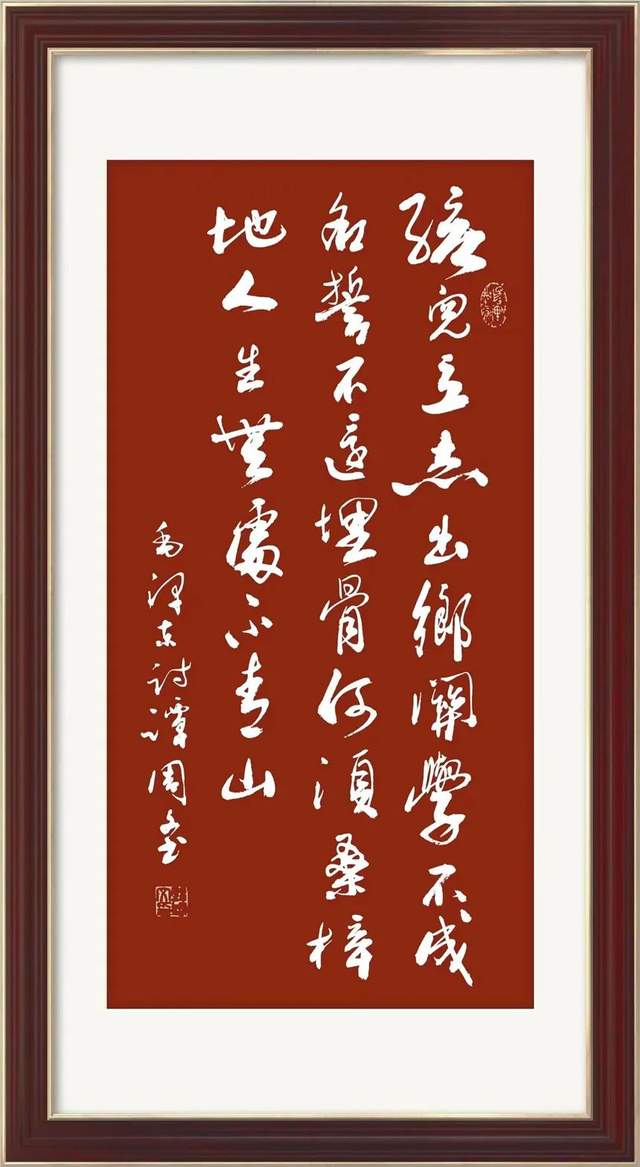 孩兒立志出鄉關學不成
名誓不還埋骨何須桑梓
地人生無處不青山
毛澤東詩譚周